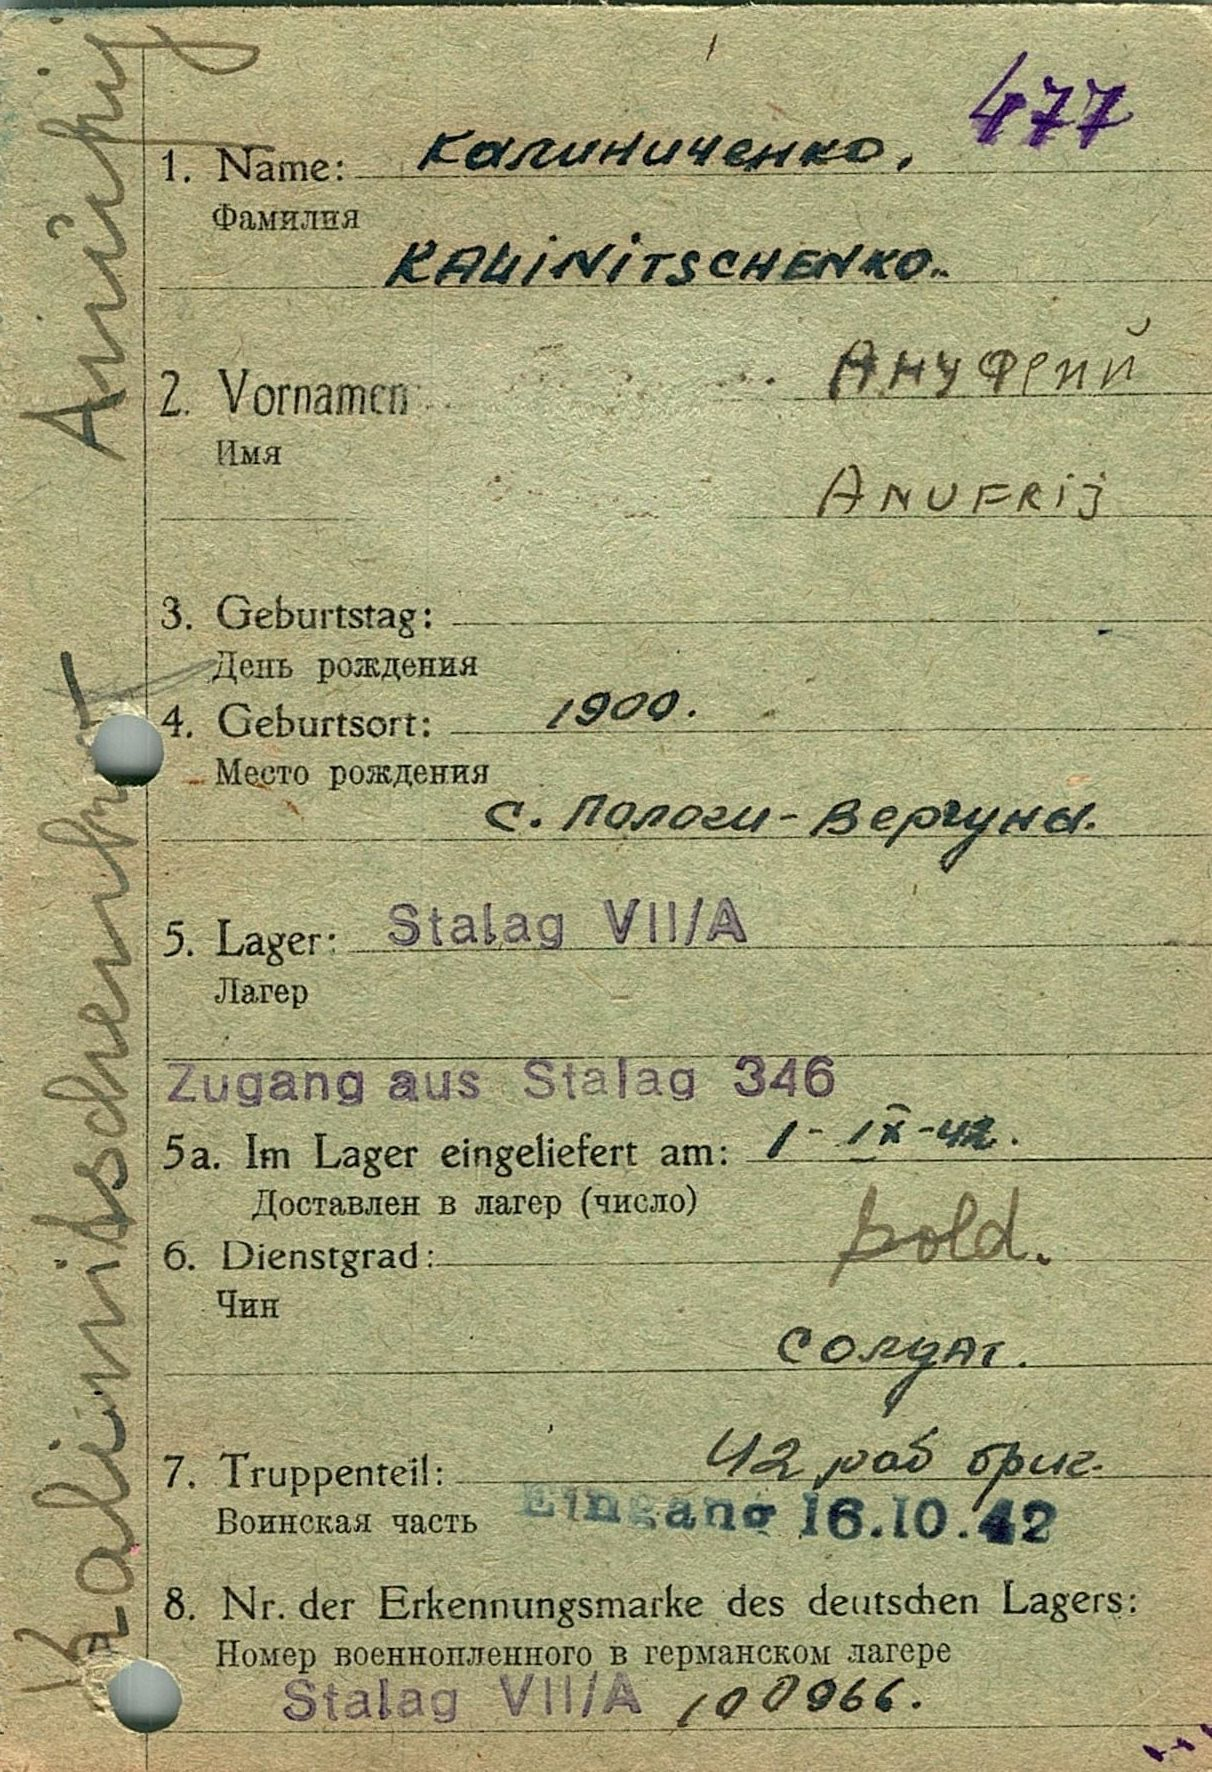 477
1. Name: Калиниченко,
Фамилия
KALiNiTSCHENKO..
2. Vornamen Ануфрий
Имя
ANUFRij
3. Geburtstag:
День рождения
4. Geburtsort: 1900.
Место рождения
с. Пологи-Вергуны.
5. Lager: Stalag VII/A
Лагер
Zugang aus Stalag 346
5a. Im Lager eingeliefert am: 1-IX-42.
Доставлен в лагер (число)
6. Dienstgrad: Sold.
Чин
солдат.
7. Truppenteil: 42 раб бриг.
Воинская часть Eingang 16.10.42
8. Nr. der Erkennungsmarke des deutschen Lagers:
Номер военнопленного в германском лагере
Stalag VII/A 100966.
Kalinitschenko Anufrij